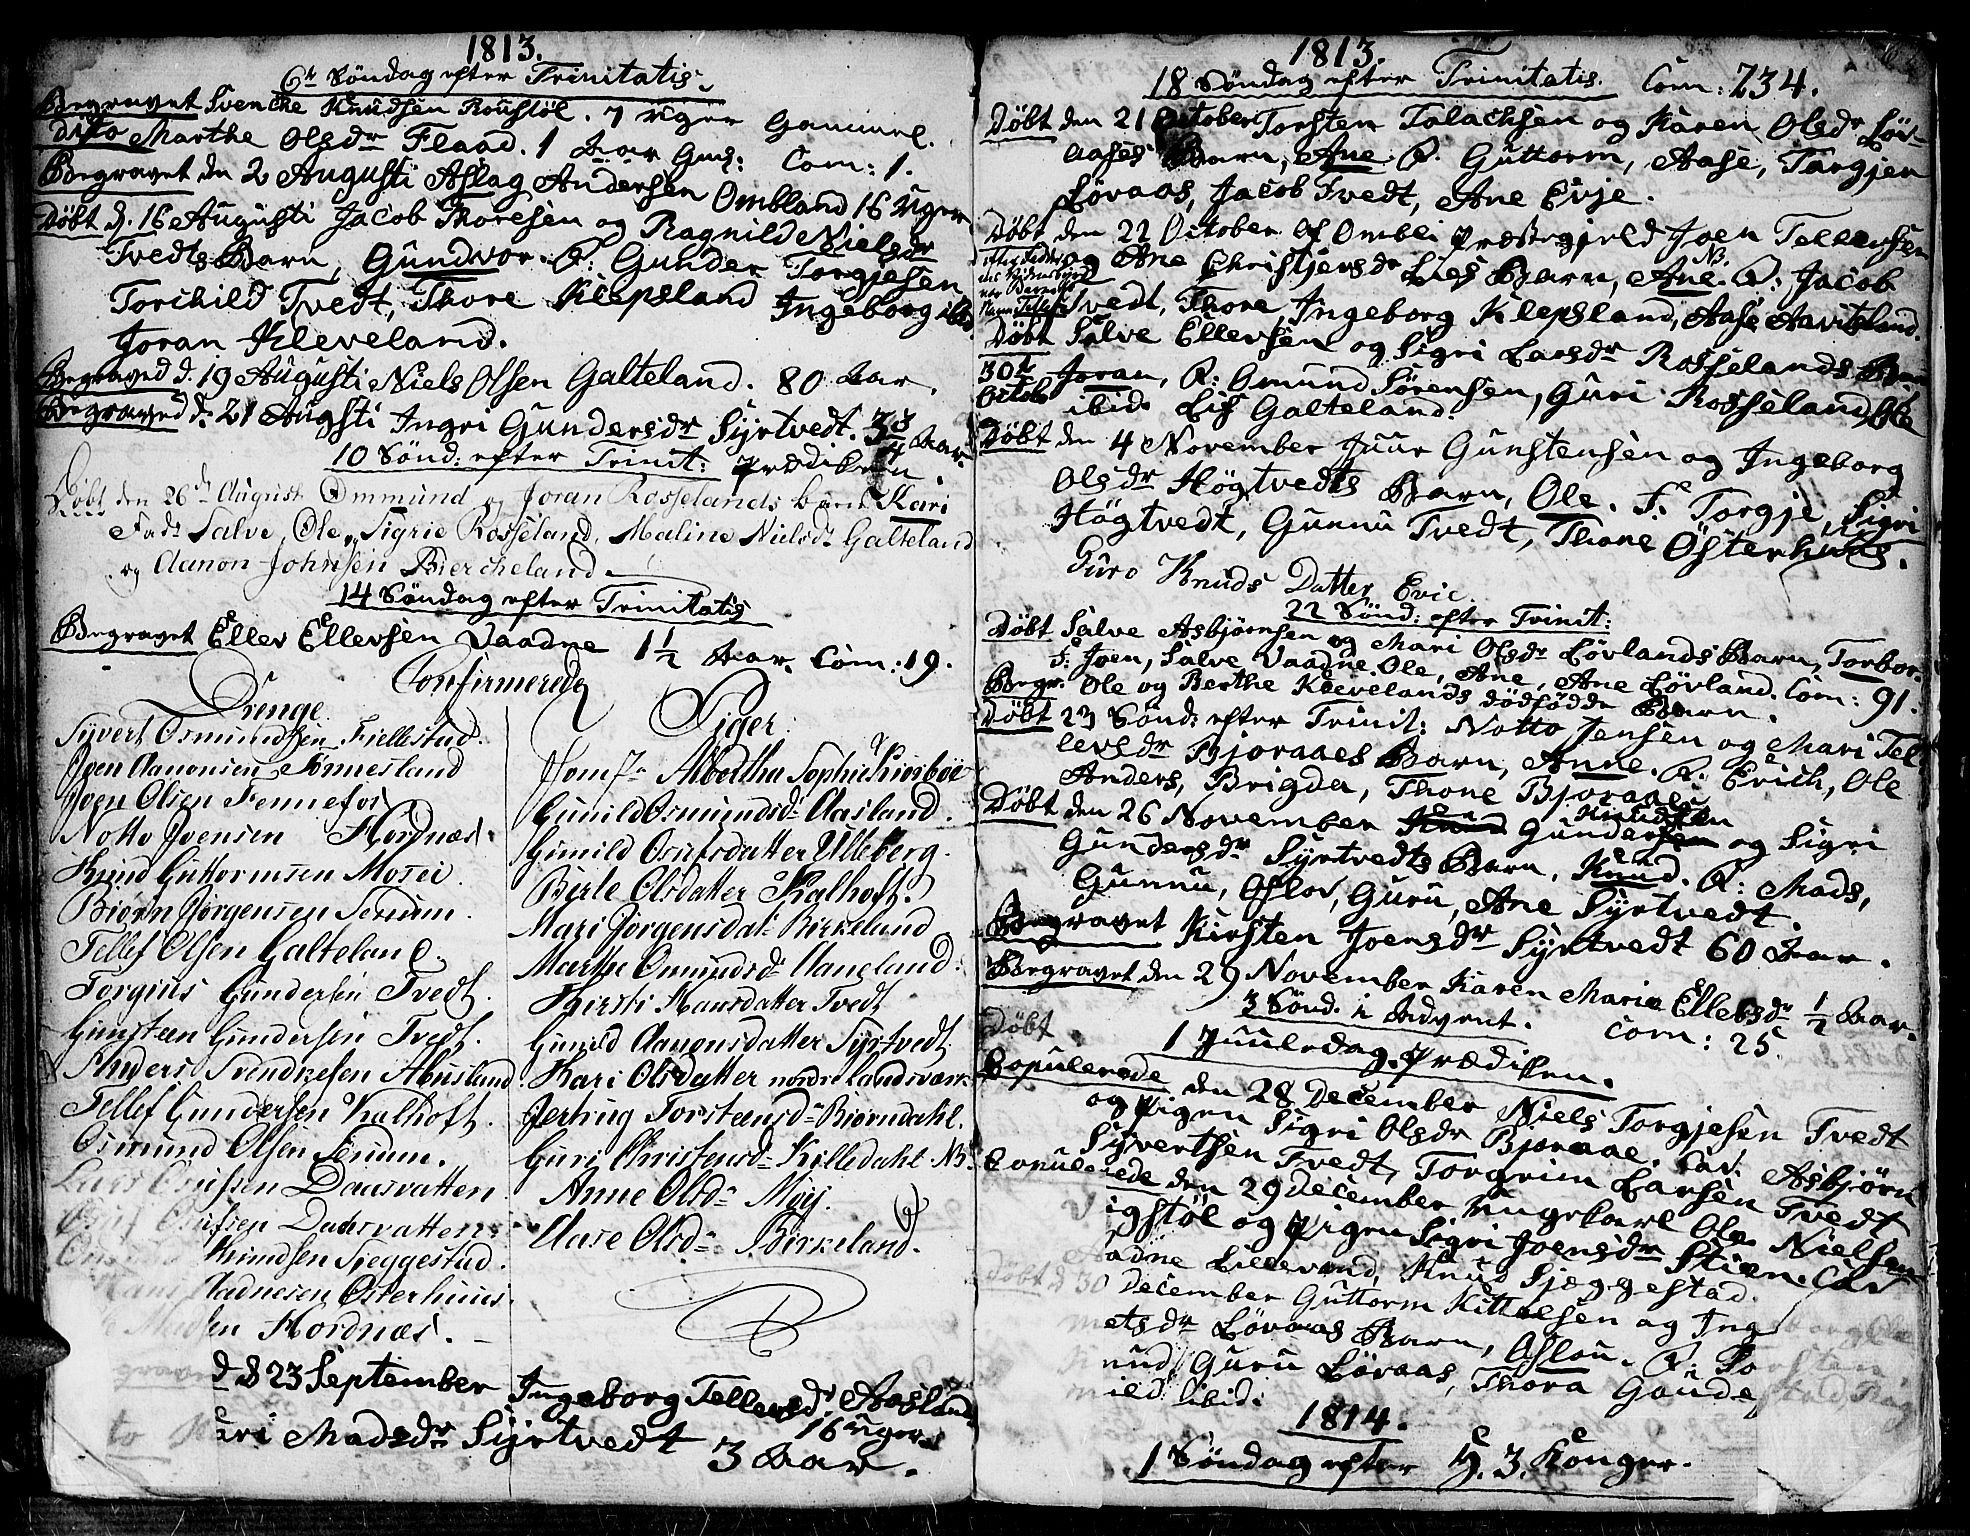 1813.
6te Söndag efter Trinitatis.
Begravet Svenche Knudsen Roustöl. 7 Uger Gammel.
Dito Marthe Olsdr Flaad. 1 Aar Gml: Com: 1.
Begravet den 2 Augusti Aslag Andersen Ombland 16 Uger
Döbt d. 16 Augusti Jacob Thoresen og Ragnild Nielsdr
Tvedts Barn, Gundvor. F: Gunder Torgjesen
Torchild Tvedt, Thore Klepsland Ingeborg ibid.
Joran Kleveland.
Begraved d. 19 Augusti Niels Olsen Galteland. 80 Aar.
Begraved d. 21 Augsti Ingri Gundersdr Syrtvedt. Aar.
10 Sönd: efter Trinit: Prædiken
Döbt den 26de August Ommund og Joran Rosselands barn Kari
Fadr Salve, Ole, Sigrie Rosseland, Maline Nielsdr Galteland
og Aanon Johnsen Bercheland.
14 Söndag efter Trinitatis
Begravet Eller Ellersen Vaadne 1 1/2 Aar. Com: 19.
Confirmerede
Drenge
Syvert Osmundsen Fiellestad.
Joen Aanonsen Tönnesland
Joen Olsen Fennefos
Notto Joensen Hordnæs.
Knud Guttormsen Mosei.
Biörn Jörgensen Senum.
Tellef Olsen Galteland.
Torgius Gundersen Tvedt.
Gunsteen Gundersen Tvedt.
Anders Svendkesen Abusland
Tellef Gundersen Kalhoft.
Osmund Olsen Senum.
Lars Osufsen Daasvatten
Osuf Osufsen Daasvatten
Knudsen Sieggestad.
Aadnesen Osterhuus.
Hordnæs.
Piger.
Jomf: Albertha Sophie Kiörboe
Gunild Osmundsdr Aasland.
Gunild Osufsdatter Uleberg.
Birte Olsdatter Kalhoft.
Mari Jörgensdatr Birkeland
Marthe Osmundsdr Haugland.
Kirsti Hansdatter Tvedt
Gunild Aanonsdatter Syrtvedt.
Kari Olsdatter nordre Landsværk
Jertrug Torsteensdr Biörndahl.
Guri Christensdr Killedahl. NB.
Anne Olsdr Moj.
Aase Olsdr Birkeland.
d 23 September Ingeborg Tellevsdr Aasland
16 Uger
Kari Madsdr Syrtvedt 3 Aar.
1813.
18 Söndag efter Trinitatis. Com: 234.
Döbt den 21 October Torsten Talachsen og Karen Olsdr Löv-
aases Barn, Ane. F. Guttorm, Aase, Targjen
Lövaas, Jacob Tvedt, Ane Evje.
Döbt den 22 October af Ombli Præstegjeld Joen Tellevsen
og Ane Christjensdr Lies Barn, Ane. NB. F: Jacob
Tvedt, Thore, Ingeborg Klepsland, Aase Aavitsland.
Döbt Salve Ellersen og Sigri Larsdr Rosselands Barn
30te Octob. Joran, F: Omund Sörensen, Guri Rosseland, Ole
ibid. Lis Galteland.
Döbt den 4 November Juur Gunstensen og Ingeborg
Olsdr Högtvedts Barn, Ole. F. Torgje, Sigri
Högtvedt, Gunnu Tvedt, Thone Österhuus.
Guro Knuds Datter Evie.
22 Sönd: efter Trinit:
Döbt Salve Asbjörnsen og Mari Olsdr Lövlands Barn, Torbor.
F: Joen, Salve Vaadne. Ole, Ane, Ane Lövland. Com: 91.
Begr. Ole og Berthe Klevelands dödfödde Barn.
Döbt 23 Sönd: efter Trinit: Notto Jensen og Mari Tel-
levsdr Bjoraaes Barn, Anne. F: Erich, Ole
Anders, Brigda, Thone Bjoraae.
Döbt den 26 November Gunder Knudsen og Sigri
Gundersdr Syrtvedts Barn, Knud. F: Mads,
Gunnu, Aslov, Guru, Ane Syrtvedt.
Begravet Kirsten Joensdr Syrtvedt 60 Aar.
Begravet den 29 November Karen Maria Ellevsdr 1/2 Aar.
3 Sönd. i Advent. Com: 25.
Döbt
1 Juuledag. Prædiken.
Copulerede den 28 December Niels Torgjesen Tvedt
og Pigen Sigri Olsdr Bjoraae. Cav. Asbjörn
Syvertsen Tvedt, Torgrim Larsen Tvedt
Copulerede den 29 December Ungekarl Ole Nielsen
igstöl og Pigen Sigri Joensdr Stien. Cav
Lillevand, Knud Sjæggestad.
Döbt d 30 December Guttorm Kittelsen og Ing
etsdr Lövaas Barn, Aslou. F: To
nud, Guru Lövaas, Thora Gaude,
ild ibid.
1814.
1 Söndag efter H. 3. Konger.